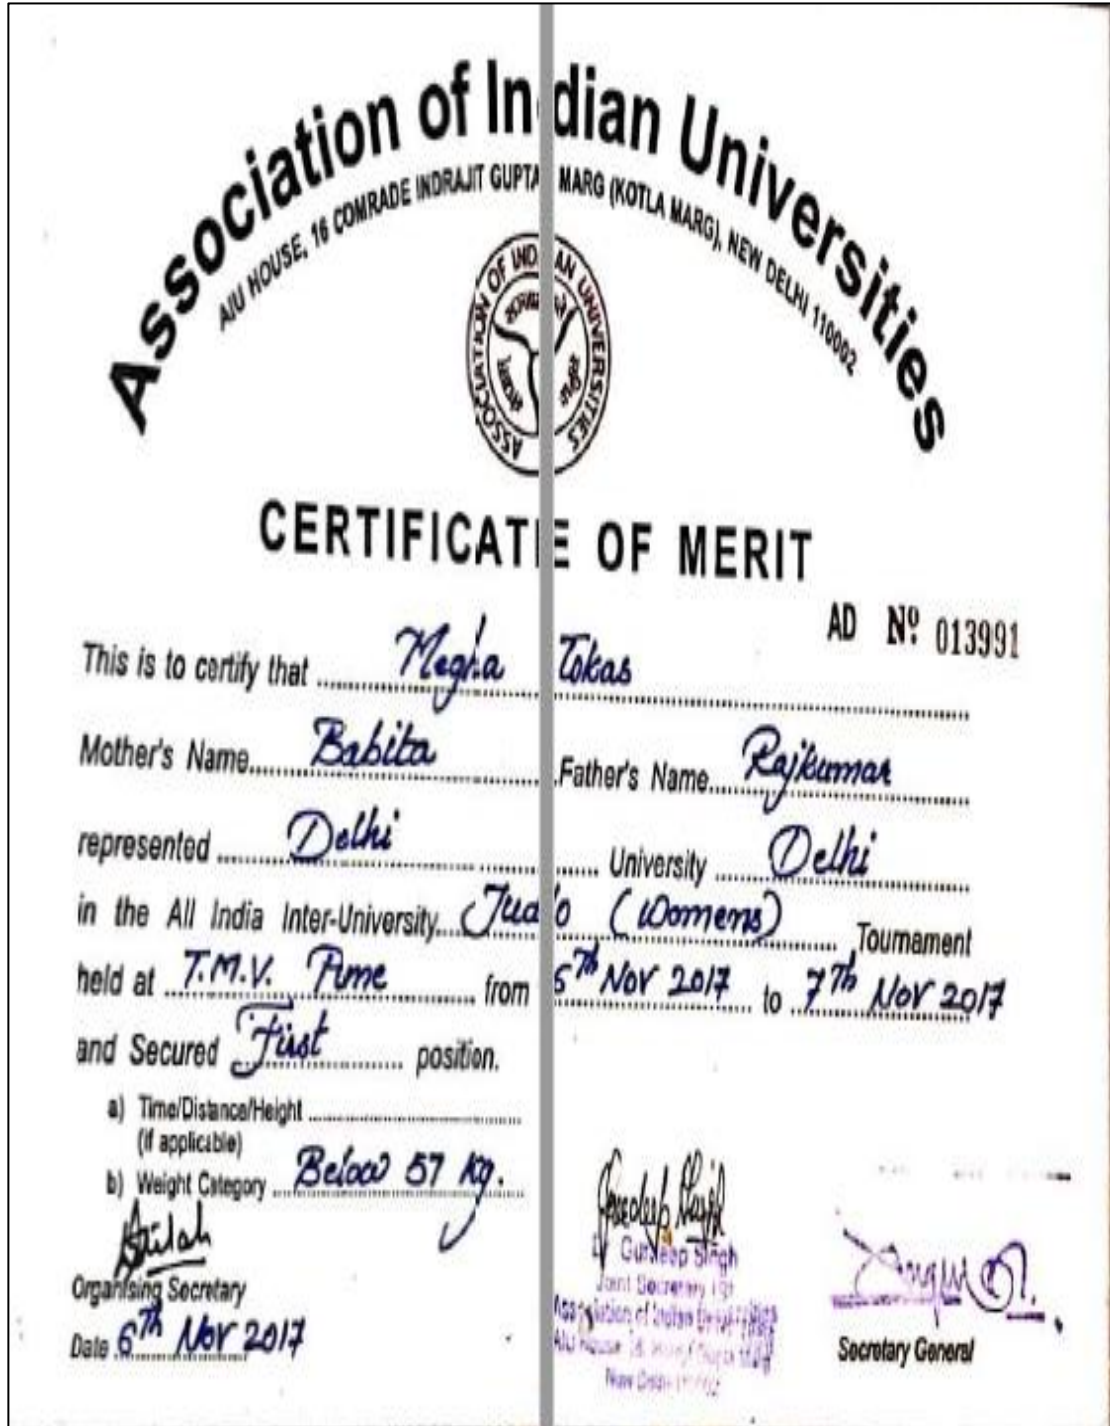 Association of Indian Universities
AIU HOUSE, 16 COMRADE INDRAJIT GUPTA MARG (KOTLA MARG), NEW DELHI 110002
ASSOCIATION OF INDIAN UNIVERSITIES
CERTIFICATE OF MERIT
AD Nº 013991
This is to certify that Megha Tokas
Mother's Name Babita Father's Name Rajkumar
represented Delhi University Delhi
in the All India Inter-University Judo (Womens) Tournament
held at T.M.V. Pune from 6th Nov 2017 to 7th Nov 2017
and Secured First position.
a) Time/Distance/Height
(if applicable)
b) Weight Category Below 57 Kg.
Gurdeep Singh
Joint Secretary
Association of Indian Universities
AIU House, 16
New Delhi
Organising Secretary
Date 6th Nov 2017
Secretary General